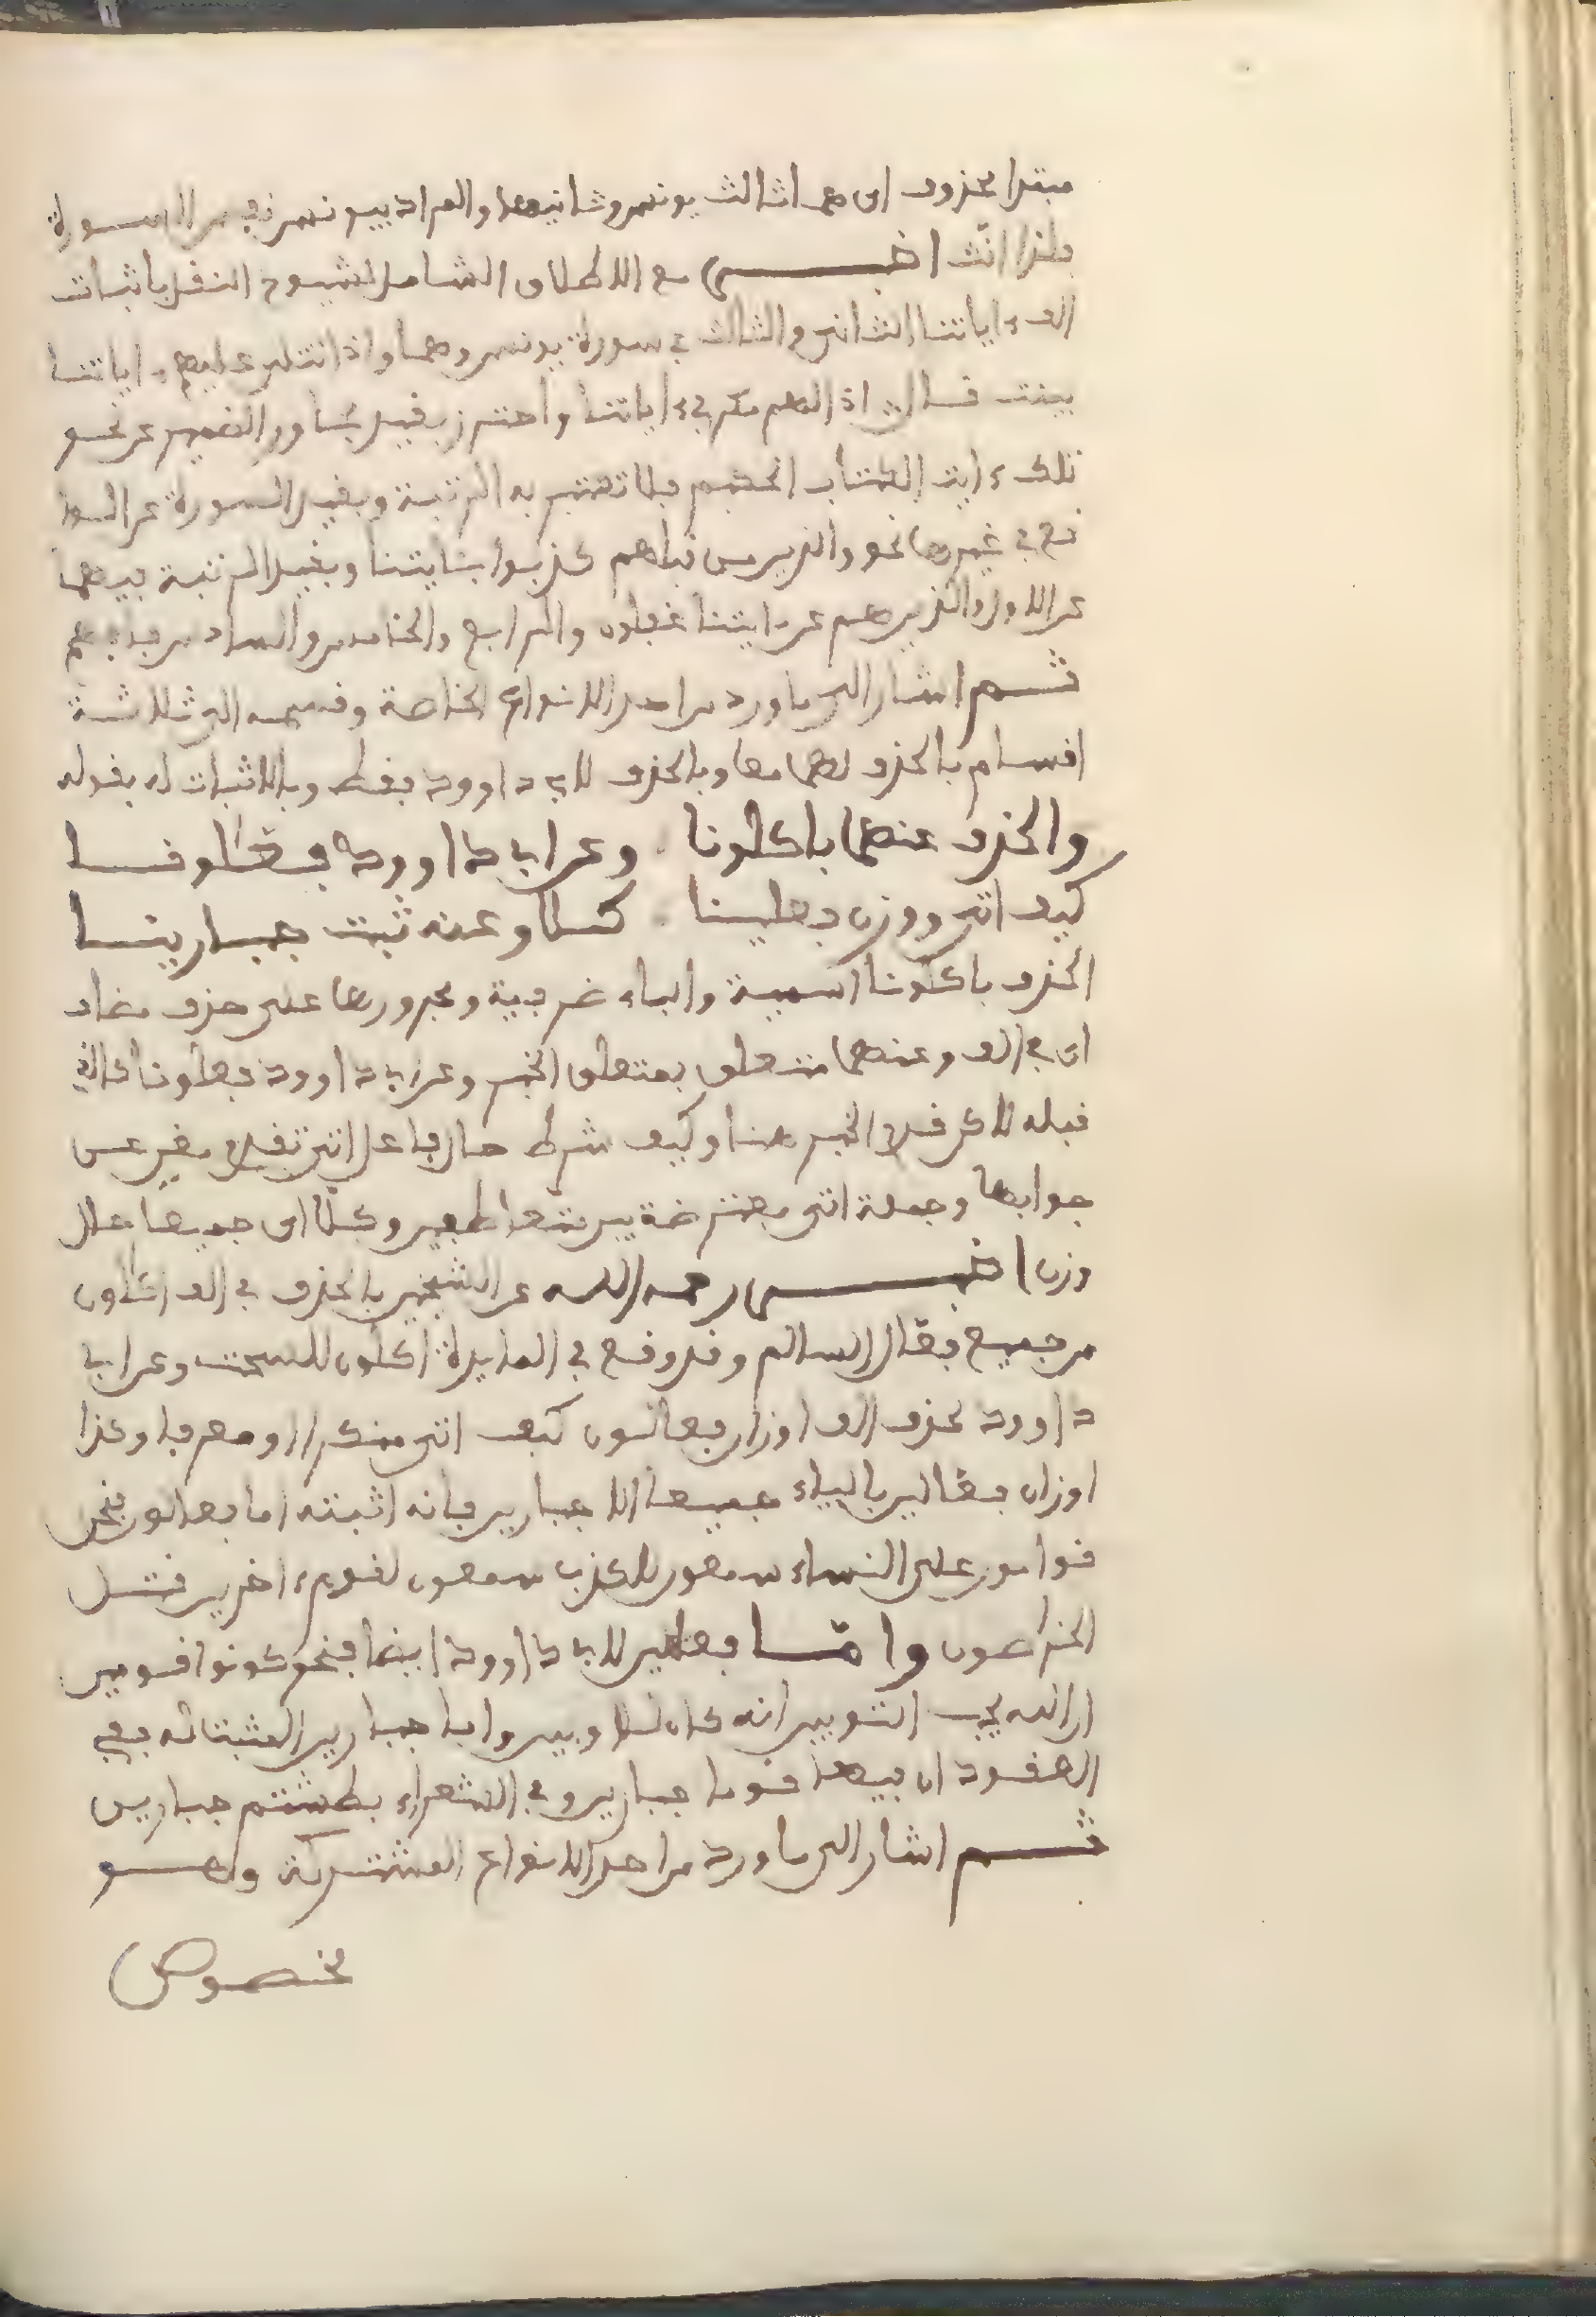 مبتدا محذوف اى هما ثالث يونس وثانيها والمراد بيونس نفس السورة
ولذا انث اخبر مع الاطلاق الشامل لشيوخ النقل باثبات
الف ءاياتنا الثانى والثالث في سورة يونس وهما واذا تتلى عليهم ءاياتنا
بينت قال اذا لهم مكر في ءاياتنا واحترز بقيد مجاور الضمير عن نحو
تلك ءايت الكتاب الحكيم فلا تعتبر به الرتبة وبقيد السورة عن الوا
قع في غيرها نحو والذين من قبلهم كذبوا بئايتنا وبقيد الرتبة فيهما
عن الاول والذين هم عن ءايتنا غفلون والرابع والخامس والسادس
ثم اشار الى ما ورد من احد الانواع الخاصة وقسمه الى ثلاثة
اقسام بالحذف لهما معا وبالحذف لابي داوود فقط وبالاثبات له بقوله
والحذف عنهما باكلونا . وعن ابي داوود فعلونا
كيف اتى ووزن فعلينا . كلا وعنه ثبت جبارينا
الحذف باكلونا اسمية والباء ظرفية ومجرورها على حذف مضاف
اى في الف وعنهما متعلق بمتعلق الخبر وعن ابي داوود فعلونا كالذي
قبله لاكن قدر الخبر هنا وكيف شرط حال فاعل اتى تقدم مغن عن
جوابها وجملة اتى معترضة بين متعاطفين وكلا اى جميعا حال
وزن اخبر رحمه الله عن الشيخين بالحذف في الف اكلون
من جميع فعال السالم وقد وقع في المايدة اكلون للسحت وعن ابي
داوود بحذف الف اوزان فعالون كيف اتى منكرا او معرفا وكذا
اوزان فعالين بالياء جميعا الا جبارين فانه اثبته اما فعالون فنحو
قوامون على النساء سمعون للكذب سمعون لقوم ءاخرين قتل
الخراصون واما فعالين لابي داوود ايضا فنحو كونوا قومين
ان الله يحب التوبين انه كان للاوبين واما جبارين المثبتا له ففي
العقود ان فيها قوما جبارين وفي الشعراء بطشتم جبارين
ثم اشار الى ما ورد من احد الانواع المشتركة وهو
مخصوص